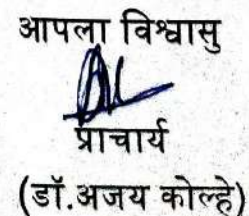 आपला विश्वासु
प्राचार्य
(डॉ.अजय कोल्हे)